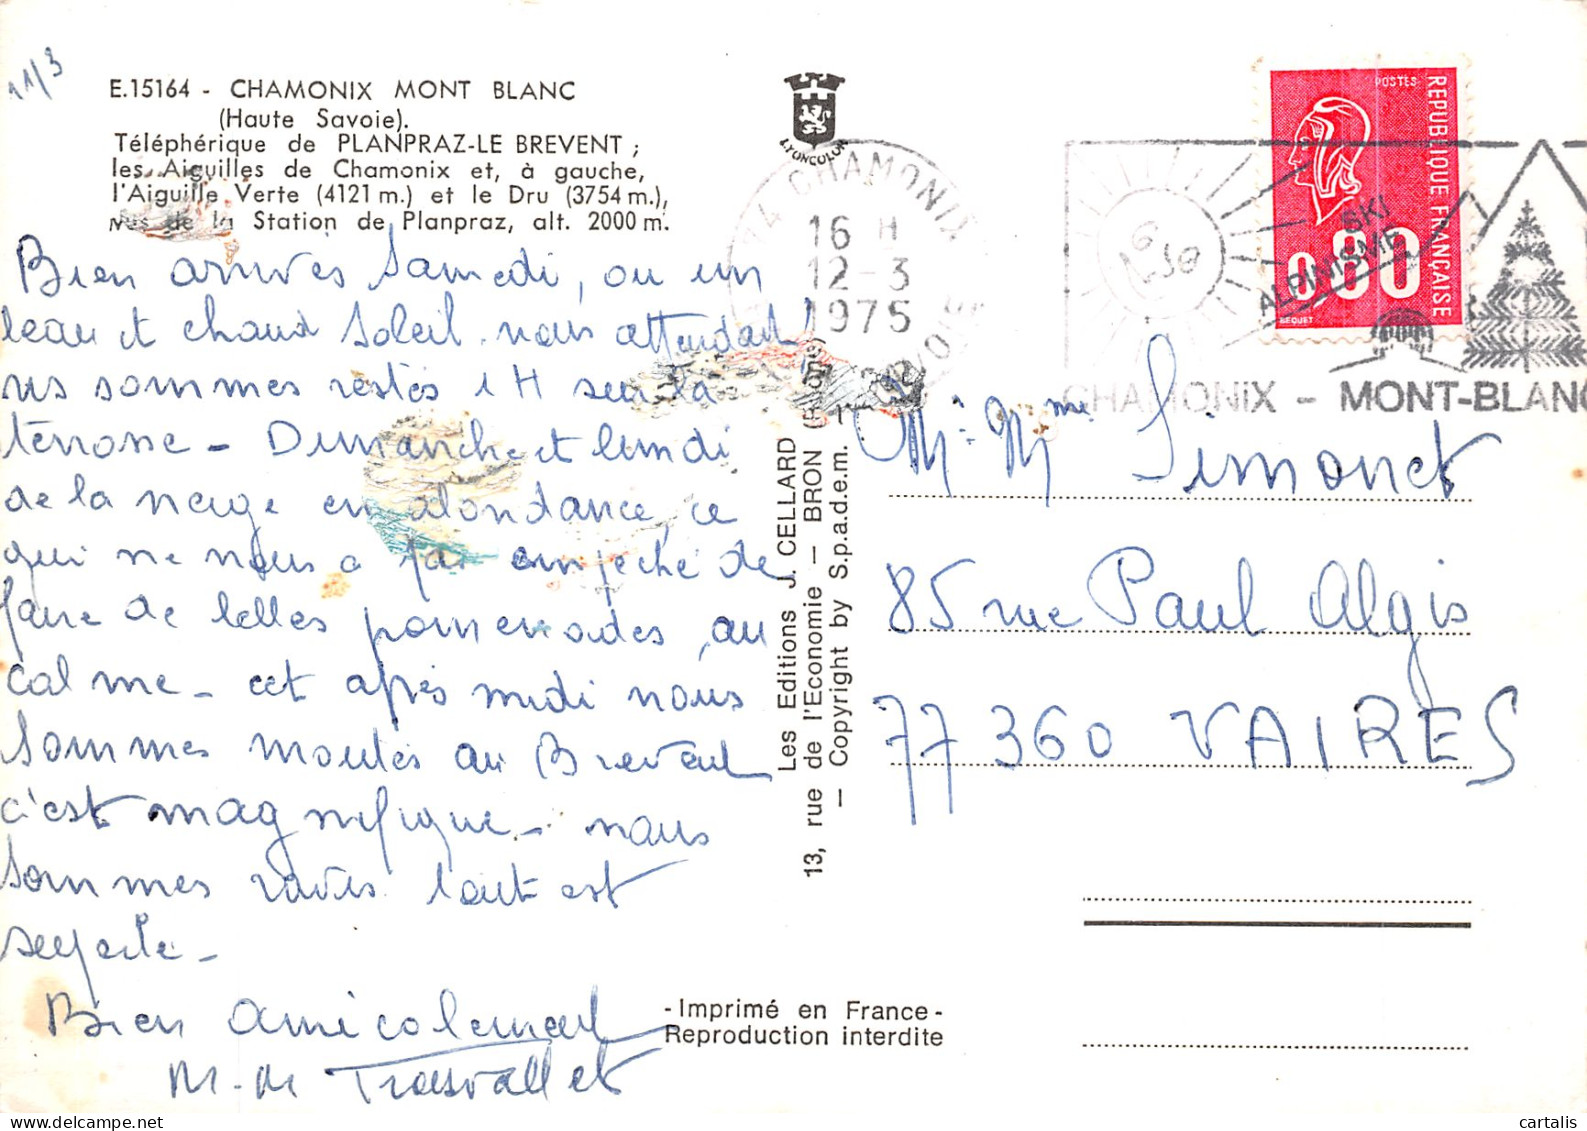 11/3
E.15164 - CHAMONIX MONT BLANC
(Haute Savoie).
Téléphérique de PLANPRAZ-LE BREVENT ;
les Aiguilles de Chamonix et, à gauche,
l'Aiguille Verte (4121 m.) et le Dru (3754 m.),
vus de la Station de Planpraz, alt. 2000 m.
Bien arrivés Samedi, ou un
beau et chaud Soleil nous attendait
ns sommes restés 1 H sur la
terrasse - Dimanche et lundi
de la neige en abondance, ce
qui ne nous a pas empeché de
faire de belles promenades, au
calme - cet après midi nous
sommes montés au Brevent
c'est magnifique - nous
sommes ravis tout est
Bien amicalement
M. M
LYONCOLOR
74 CHAMONIX
16 H
12-3
1975
SAVOIE
SKI
ALPINISME
CHAMONIX - MONT-BLANC
POSTES
REPUBLIQUE FRANÇAISE
0,80
BEQUET
Les Editions J. CELLARD
13, rue de l'Economie — BRON (Rhône)
— Copyright by S.p.a.d.e.m. —
Mr Mme Simonet
85 rue Paul Algis
77360 VAIRES
- Imprimé en France -
Reproduction interdite
cartalis